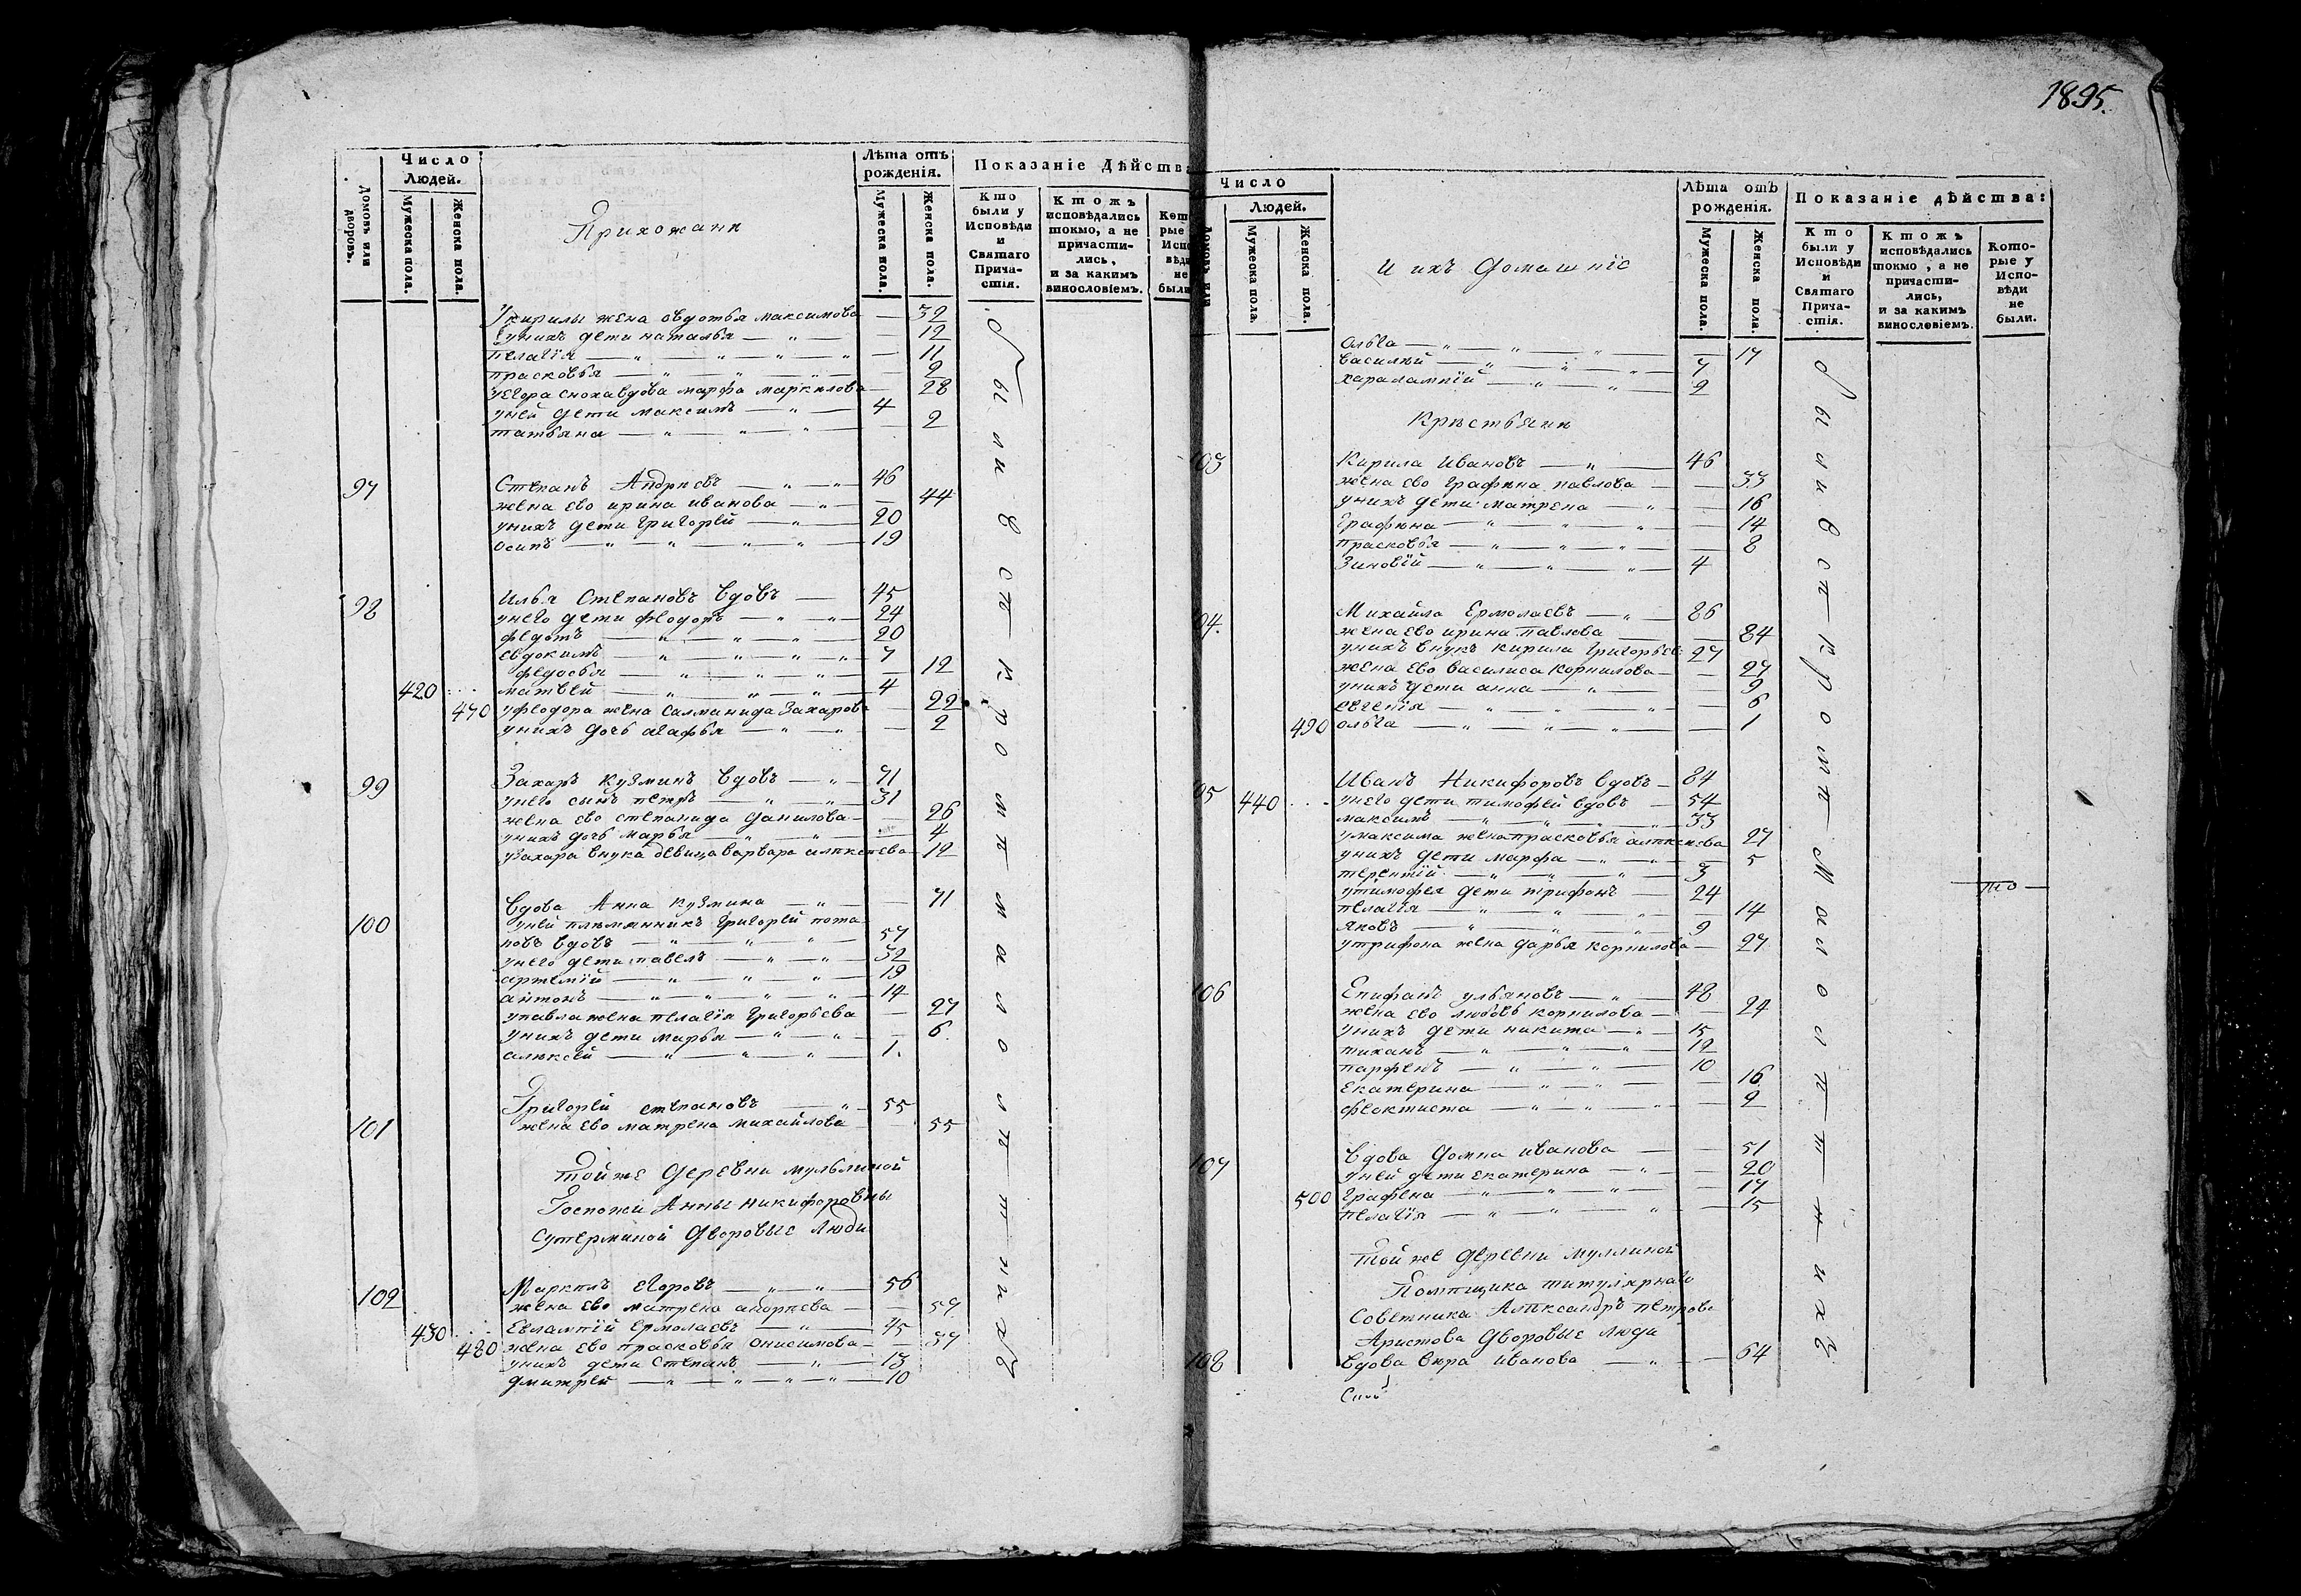 1895.
Домовъ или дворовъ.
Число Людей.
Мужеска пола.
Женска пола.
Прихожане
Лѣта отъ рожденія.
Мужеска пола.
Женска пола.
Показаніе Дѣйств
Кто были у Исповѣди и Святаго Причастія.
Ктожъ исповѣдались токмо, а не причастились, и за какимъ винословіемъ.
Кот рые Исп вѣди не были
у кирилы жена овдотья максимова — 32
у нихъ дети наталья — " — 12
пелагія — " — " — " — " — 11
прасковья — " — " — " — 9
у егора сноха вдова марфа маркелова — 28
у ней дети максимъ — " — 4
татьяна — " — " — " — 2
97 Степанъ Андреевъ — " — " — 46
жена ево ирина иванова — " — 44
у нихъ дети григорей — " — 20
осипъ — " — " — " — " — 19
98 Илья Степановъ вдовъ — 45
у него дети феодоръ — " — " — 24
федотъ — " — " — " — 20
евдокимъ — " — " — " — " — 7
федосья — " — " — " — 12
420 матвей — " — " — " — 4
470 у феодора жена саламанида захарова — 22
у нихъ дочь агафья — " — " — 2
99 Захаръ кузминъ вдовъ — " — 71
у него сынъ петръ — " — " — 31
жена ево степанида данилова — 26
у нихъ дочь марья — " — " — 4
у захара внука девица варвара алексеева — 12
100 вдова Анна кузмина — " — 71
у ней племянникъ григорей пота-
повъ вдовъ — " — " — " — 57
у него дети павелъ — " — " — 32
артемій — " — " — " — 19
антонъ — " — " — " — " — 14
у павла жена пелагія григорьева — 27
у нихъ дети марья — " — " — 6
алексей — " — " — " — 1.
101 Григорей степановъ — " — 55
жена ево матрена михайлова — 55
той же деревни мульлиной
Госпожи Анны никифоровны
сутерминой дворовые люди
102 Маркелъ егоровъ — " — " — 56
жена ево матрена андреева — 57
430 Евлампій ермолаевъ — " — 45
480 жена ево прасковья онисимова — 37
у нихъ дети степанъ — " — 13
дмитрей — " — " — " — " — 10
были в сп ѣ кромѣ малолѣтнихъ
Домовъ или
Число Людей.
Мужеска пола.
Женска пола.
и ихъ домашніе
Лѣта отъ рожденія.
Мужеска пола.
Женска пола.
Показаніе дѣйства:
Кто были у Исповѣди и Святаго Причастія.
Ктожъ исповѣдались токмо, а не причастились, и за какимъ винословіемъ.
Которые у Исповѣди не были.
ольга — " — " — " — 17
василий — " — " — " — 7
харалампій — " — " — 2
крестьяне
103 Кирила Ивановъ — " — 46
жена ево графена павлова — 33
у нихъ дети матрена — " — 16
графена — " — " — " — 14
прасковья — " — " — " — 8
зиновій — " — " — " — 4
104. Михайла Ермолаевъ — " — 86
жена ево ирина павлова — 84
у нихъ внукъ кирила григорьев 27
жена ево василиса корнилова — 27
у нихъ дети анна — " — 9
евгенія — " — " — " — 6
490 ольга — " — " — " — 1
105 Иванъ Никифоровъ вдовъ — 84
440 у него дети тимофей вдовъ — 54
максимъ — " — " — " — 33
у максима жена прасковья алексеева 27
у нихъ дети марфа — " — " — 5
терентій — " — " — " — 3
у тимофея дети трифонъ — 24
пелагія — " — " — " — 14
яковъ — " — " — " — 9
у трифона жена дарья корнилова — 27
106 Епифанъ ульяновъ — " — 48
жена ево любовь корнилова — 24
у нихъ дети никита — " — 15
тиханъ — " — " — " — 12
парфенъ — " — " — 10
екатерина — " — " — 16
феоктиста — " — " — " — 9
107 вдова домна иванова — 51
у ней дети екатерина — " — 20
500 графена — " — " — " — 17
пелагія — " — " — " — 15
той же деревни муллиной
Помещика титулярнаго
советника Александръ петрова
Аристова дворовые люди
108 вдова вера иванова — " — 64
были в сп ѣ кромѣ малолѣтнихъ